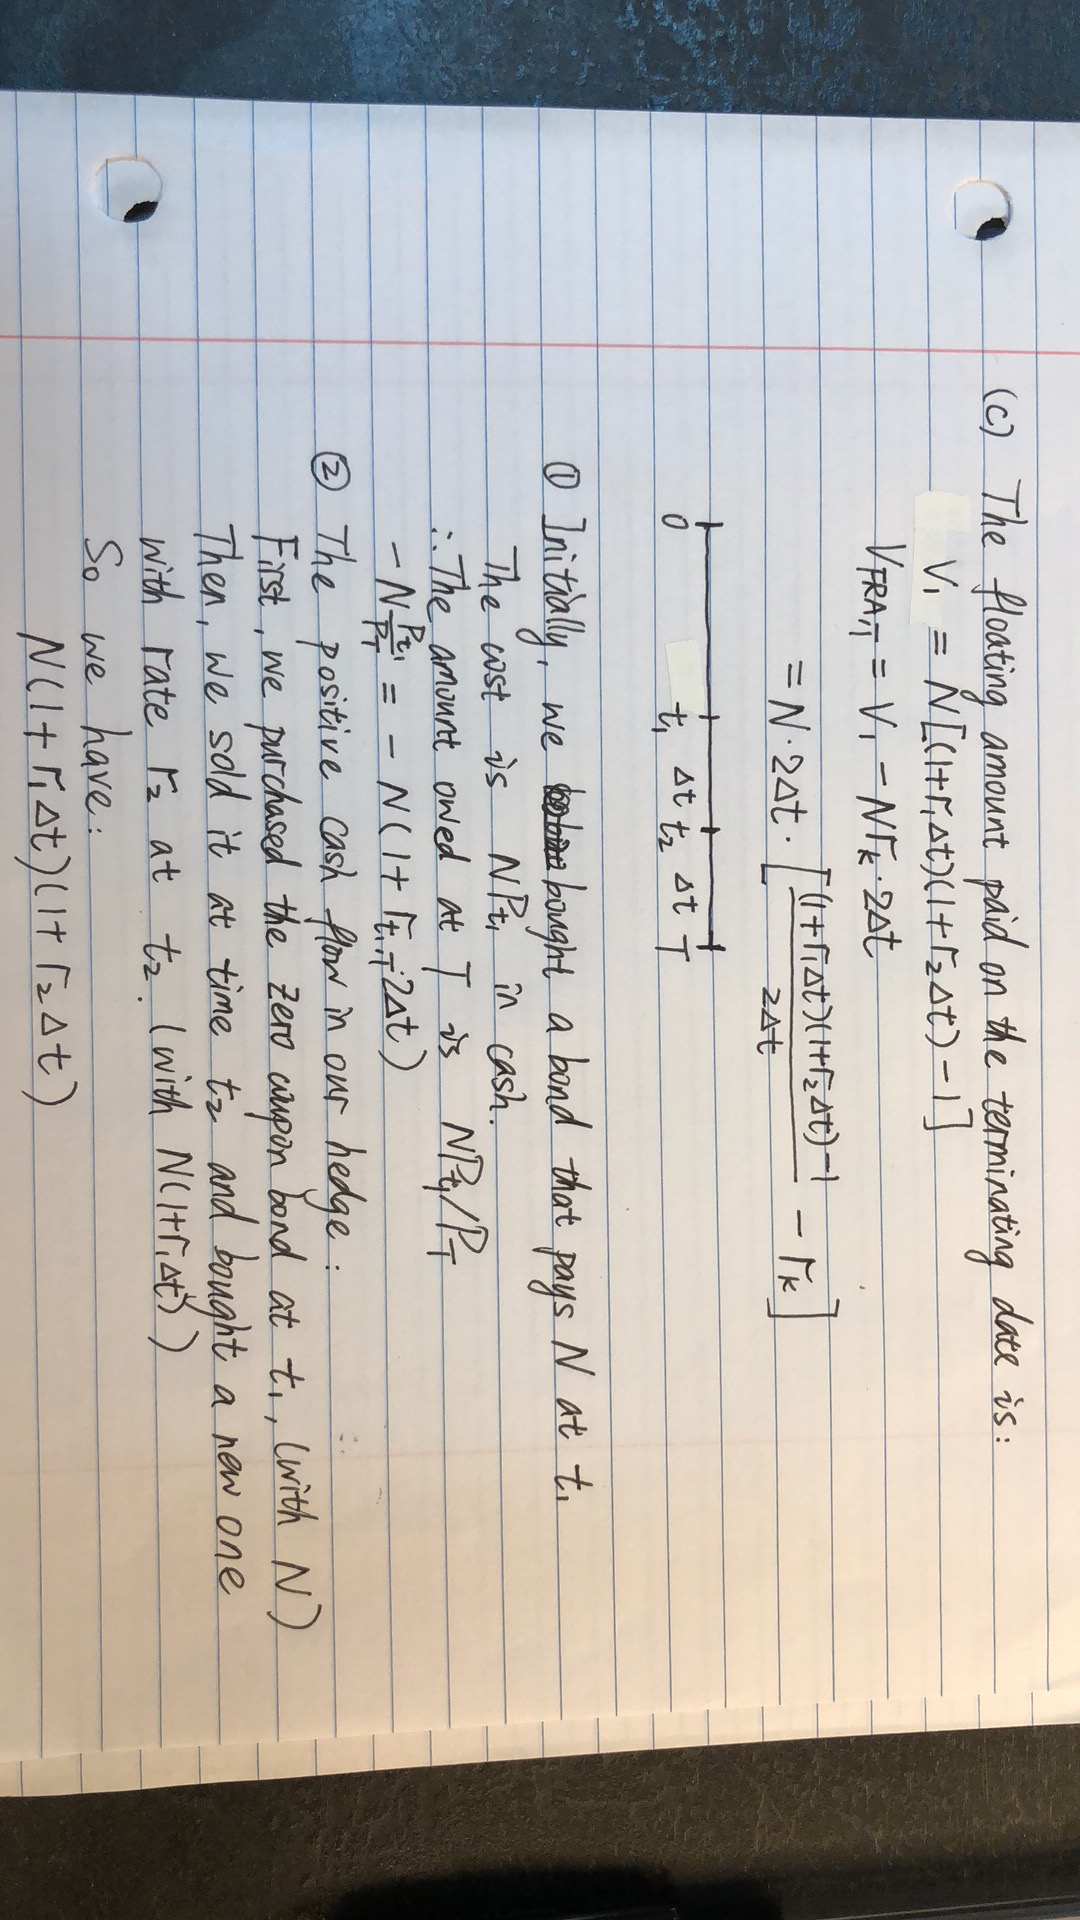 (c) The floating amount paid on the terminating date is:
V₁ = N[(1+r₁Δt)(1+r₂Δt)-1]
V_FRA,T = V₁ - Nr_k·2Δt
= N·2Δt·[((1+r₁Δt)(1+r₂Δt)-1)/(2Δt) - r_k]
0 t₁ Δt t₂ Δt T
① Initially, we bought a bond that pays N at t₁
The cost is NP_t₁ in cash.
∴ The amount owed at T is NP_t₁/P_T
-N P_t₁/P_T = -N(1+r_t₁,T·2Δt)
② The positive cash flow in our hedge:
First, we purchased the zero coupon bond at t₁, (with N)
Then, we sold it at time t₂ and bought a new one
with rate r₂ at t₂. (with N(1+r₁Δt))
So we have:
N(1+r₁Δt)(1+r₂Δt)